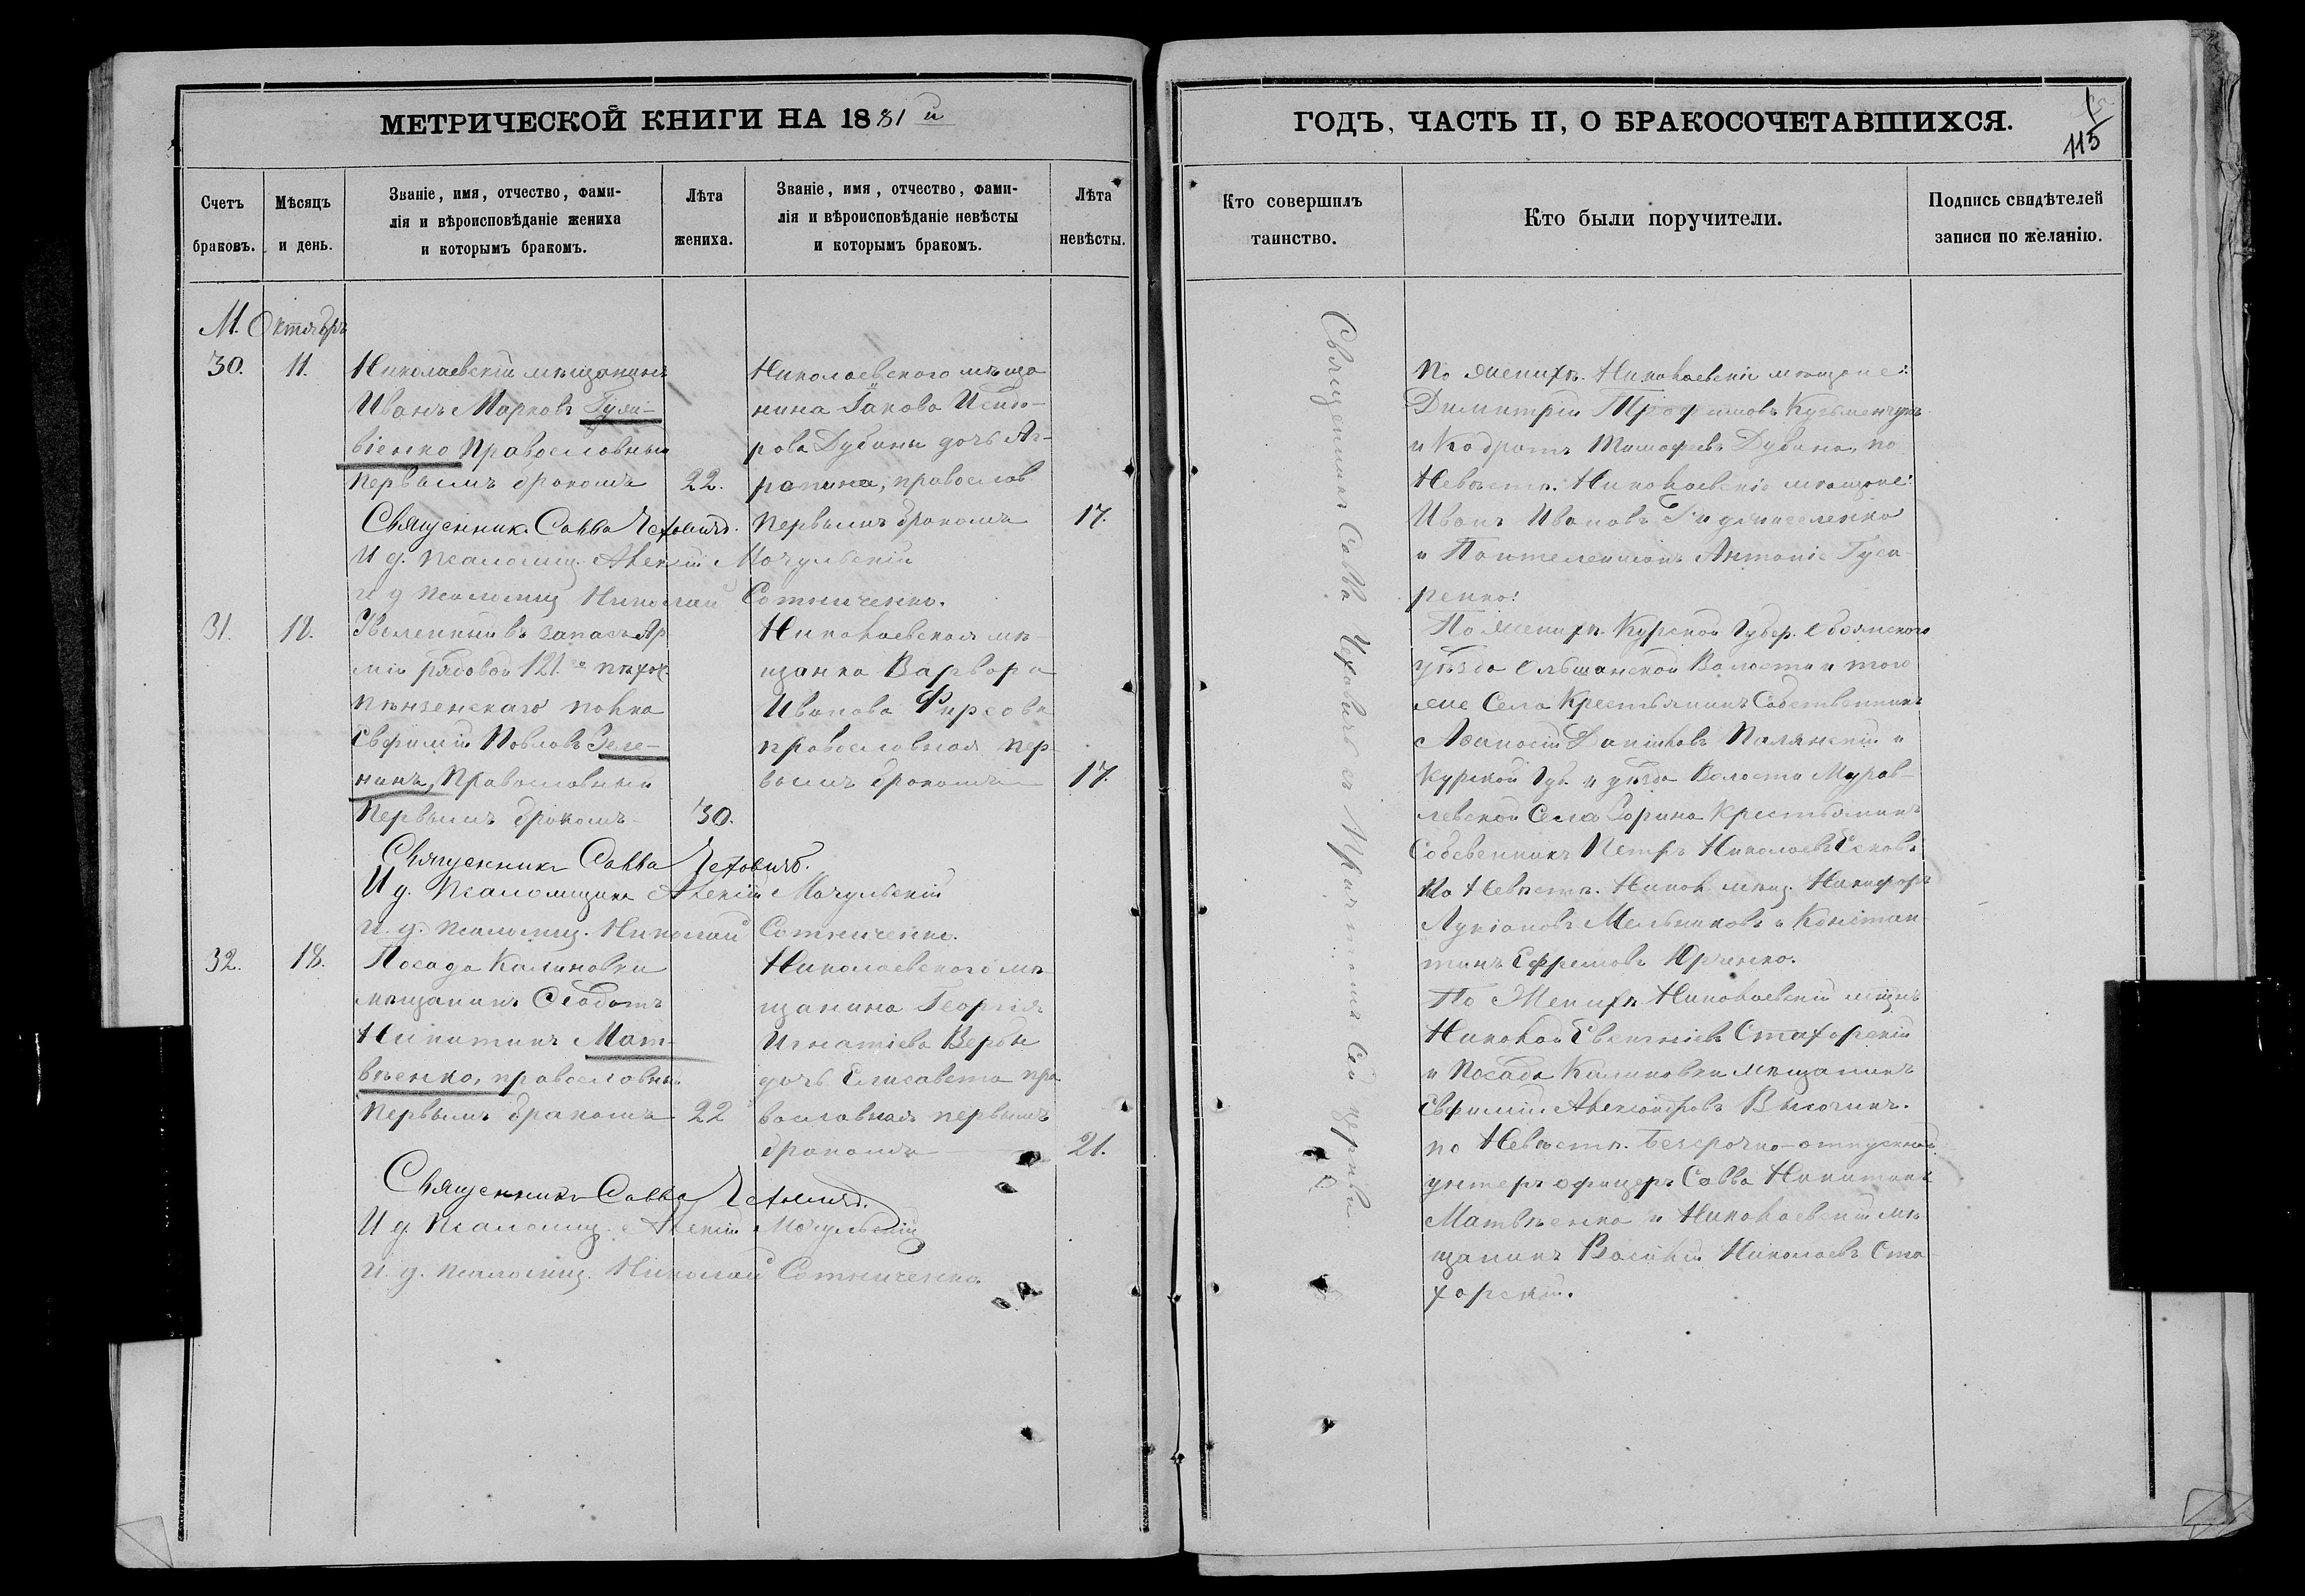 МЕТРИЧЕСКОЙ КНИГИ НА 1881 й
Счетъ браковъ.
Мѣсяцъ и день.
Званіе, имя, отчество, фами-
лія и вѣроисповѣданіе жениха
и которымъ бракомъ.
Лѣта жениха.
Званіе, имя, отчество, фами-
лія и вѣроисповѣданіе невѣсты
и которымъ бракомъ.
Лѣта невѣсты.
М. Октябрь
30.
11.
Николаевскій мѣщанинъ
Иванъ Марковъ
віенко Православный
первымъ бракомъ
22.
Николаевского мѣща
нина Іакова Исидо-
рова Дубины дочь Аг-
рапина, православ
первымъ бракомъ
17.
Священникъ Савва Чеховичъ.
И д. Псаломщ. Алексій Мочульскій
и д Псаломщ Николай Сотниченко.
31.
18.
Уволенный въ запасъ Ар
міи рядовой 121го пѣхот.
Пѣнзенскаго полка
Евфимій Павловъ Зеле-
нинъ, Православный
Первымъ бракомъ
30.
Николаевская мѣ-
щанка Варвара
Иванова Фирсова
православная пер-
вымъ бракомъ
17.
Священникъ Савва Чеховичъ.
И д. Псаломщика Алексій Мочульскій
и. д. Псаломщ. Николай Сотниченко.
32.
18.
Посада Калиновки
мѣщанинъ Ѳеодотъ
Никитинъ Мат-
вѣенко, православный
Первымъ бракомъ
22
Николаевского мѣ
щанина Георгія
Игнатіева Вербы
дочь Елисавета пра
вославная первымъ
бракомъ
21.
Священникъ Савва Чеховичъ.
И д. Псаломщ. Алексій Мочульскій
и. д. Псаломщ. Николай Сотниченко.
ГОДЪ, ЧАСТЬ II, О БРАКОСОЧЕТАВШИХСЯ.
115
Кто совершилъ таинство.
Кто были поручители.
Подпись свидѣтелей
записи по желанію.
Священникъ Савва Чеховичъ съ Причтомъ Сей церкви.
По женихѣ. Николаевскіе мѣщане:
Димитрій Трофимовъ Кузьменчукъ
и Кодратъ Тимофеевъ Дубина, по
Невѣстѣ. Николаевскіе мѣщане:
Иванъ Ивановъ
и Пантелеимонъ Антоніе Гуса-
ренко:
По женихѣ. Курской Губер. Обоянского
уѣзда Ольшанской Волости и того
же Села Крестьянинъ Собственникъ
Аѳанасій Даніиловъ Палянскій и
Курской Губ. и уѣзда Волости Мурав-
левской Села Зорина Крестьянинъ
Собсвенникъ Петръ Николаевъ Есковъ
По Невѣстѣ. Никол. мѣщ. Никифоръ
Лукіановъ Мельниковъ и Констан-
тинъ Ефремовъ Юрченко.
По Женихѣ Николаевскій мѣщнъ
Николай Евгеніевъ Стахорскій
и Посада Калиновки мѣщанинъ
Евфимій Александровъ Высочинъ.
по Невѣстѣ. Безсрочно-отпускной
унтеръ офицеръ Савва Никитинъ
Матвѣенко и Николаевскій мѣ
щанинъ Василій Николаевъ Ста
хорскій.